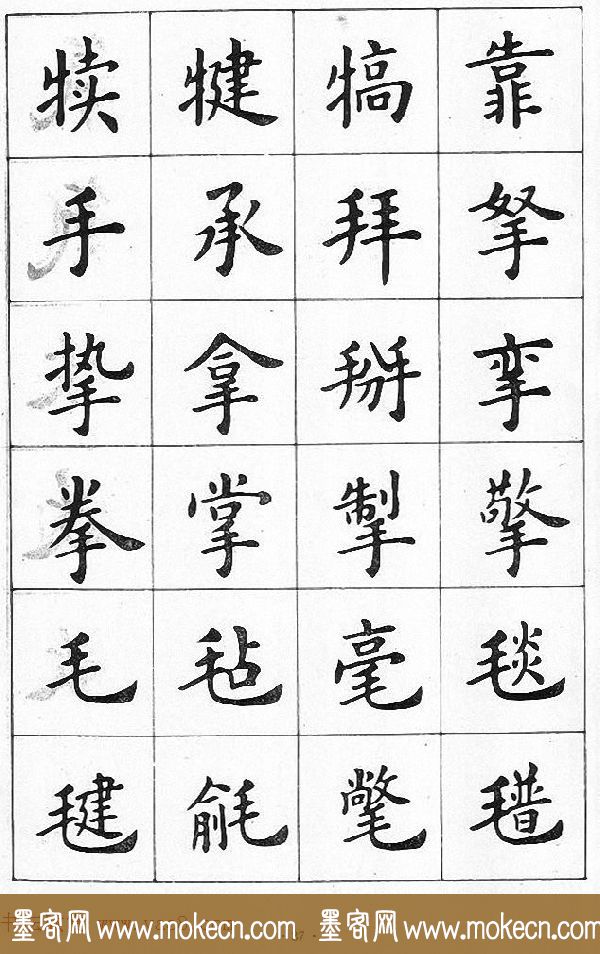 犊犍犒靠
手承拜拏
挚拿掰挛
拳掌掣擎
毛毡毫毯
毽毹氅氆
墨客网 www.mokecn.com 墨客网 www.mokecn.com